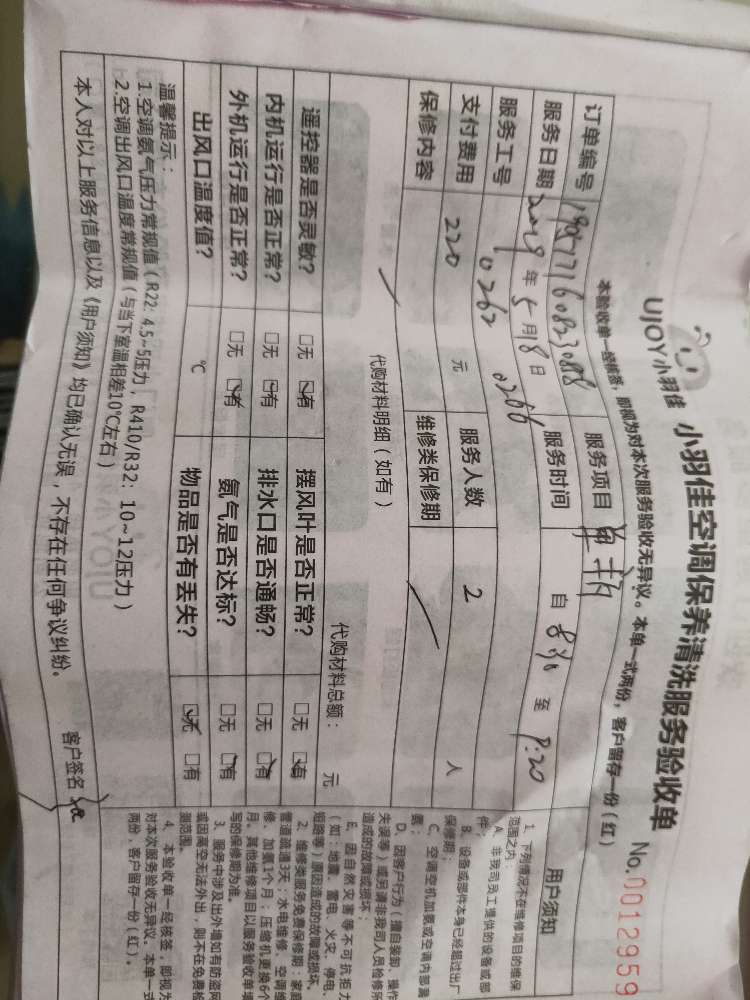 UJOY小羽佳 小羽佳空调保养清洗服务验收单 No.0012959
本验收单一经核签，即视为对本次服务验收无异议。本单一式两份，客户留存一份（红）
订单编号 服务项目
服务日期 2019年5月18日 服务时间 自 8:30 至 9:20
服务工号 0262 0266
支付费用 220 元 服务人数 2 人
保修内容 维修类保修期
代购材料明细（如有）
代购材料总额： 元
遥控器是否灵敏？ □无 □有 摆风叶是否正常？ □无 □有
内机运行是否正常？ □无 □有 排水口是否通畅？ □无 □有
外机运行是否正常？ □无 □有 氨气是否达标？ □无 □有
出风口温度值？ ℃ 物品是否有丢失？ □无 □有
温馨提示：
1.空调氨气压力常规值（R22: 4.5~5压力，R410/R32: 10~12压力）
2.空调出风口温度常规值（与当下室温相差10℃左右）
本人对以上服务信息以及《用户须知》均已确认无误，不存在任何争议纠纷。
客户签名
用户须知
1、下列情况不在维修项目的维保
范围之内：
A、非我司员工提供的设备或部
件；
B、设备或部件本身已经超过出厂
保修期；
C、空调空机加氨或空调内部漏
氨；
D、因客户行为（擅自装卸、操作
失误等）或另请非我司人员检修所
造成的故障或损坏；
E、因自然灾害等不可抗拒力
（如：地震、雷电、火灾、停电、
短路等）原因造成的故障或损坏。
2、维修类服务免费保修期：家庭
管道疏通3天；水电维修、空调维
修、加氨1个月；压缩机更换6个
月。其他维修项目以服务验收单填
写的保修期为准。
3、服务中涉及出外墙如有防盗网
或因高空无法外出，则不在免费检
测范围。
4、本验收单一经核签，即视为
对本次服务验收无异议。本单一式
两份，客户留存一份（红）。